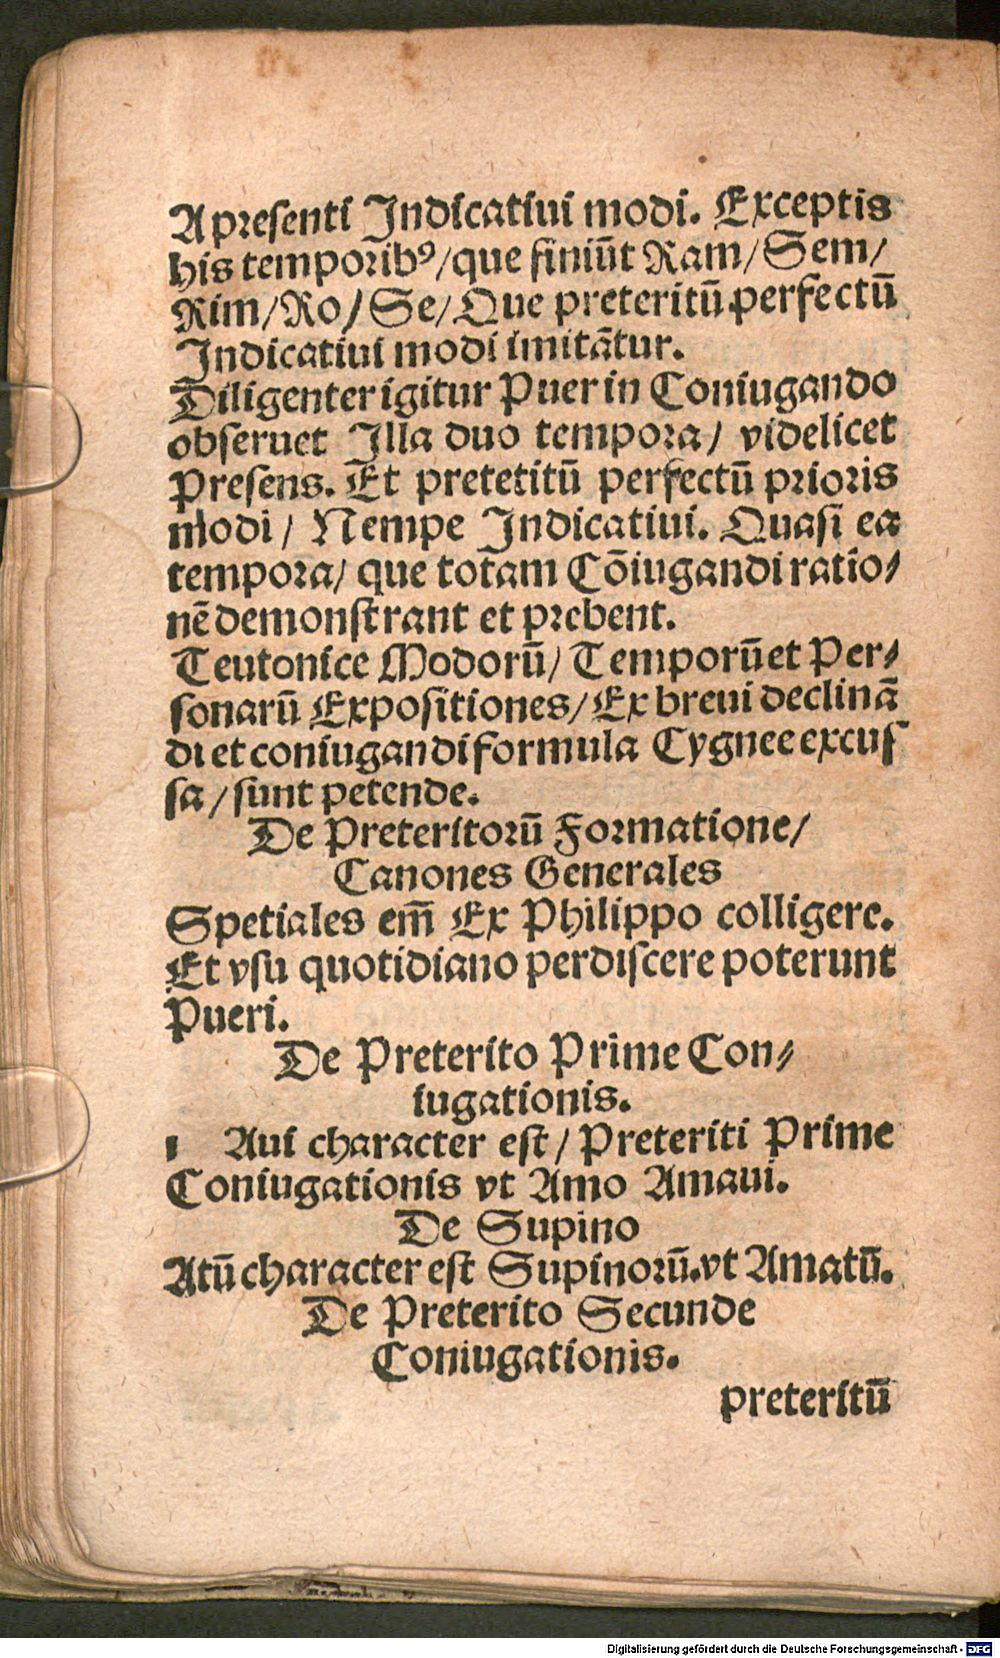 A presenti Indicatiui modi. Exceptis
his temporibꝰ/que finiūt Ram/Sem/
Rim/Ro/Se/Que preteritū perfectū
Indicatiui modi imitātur.
Diligenter igitur Puer in Coniugando
obseruet Illa duo tempora/ videlicet
Presens. Et pretetitū perfectū prioris
modi/ Nempe Indicatiui. Quasi ea
tempora/ que totam Cōiugandi ratio⸗
nē demonstrant et prebent.
Teutonice Modorū/Temporū et Per⸗
sonarū Expositiones/Ex breui declinā
di et coniugandi formula Cygnee excus
sa/sunt petende.
De Preteritorū Formatione/
Canones Generales
Spetiales em̄ Ex Philippo colligere.
Et vsu quotidiano perdiscere poterunt
Pueri.
De Preterito Prime Con⸗
iugationis.
1 Aui character est/Preteriti Prime
Coniugationis vt Amo Amaui.
De Supino
Atū character est Supinorū.vt Amatū.
De Preterito Secunde
Coniugationis.
preteritū
Digitalisierung gefördert durch die Deutsche Forschungsgemeinschaft - DFG